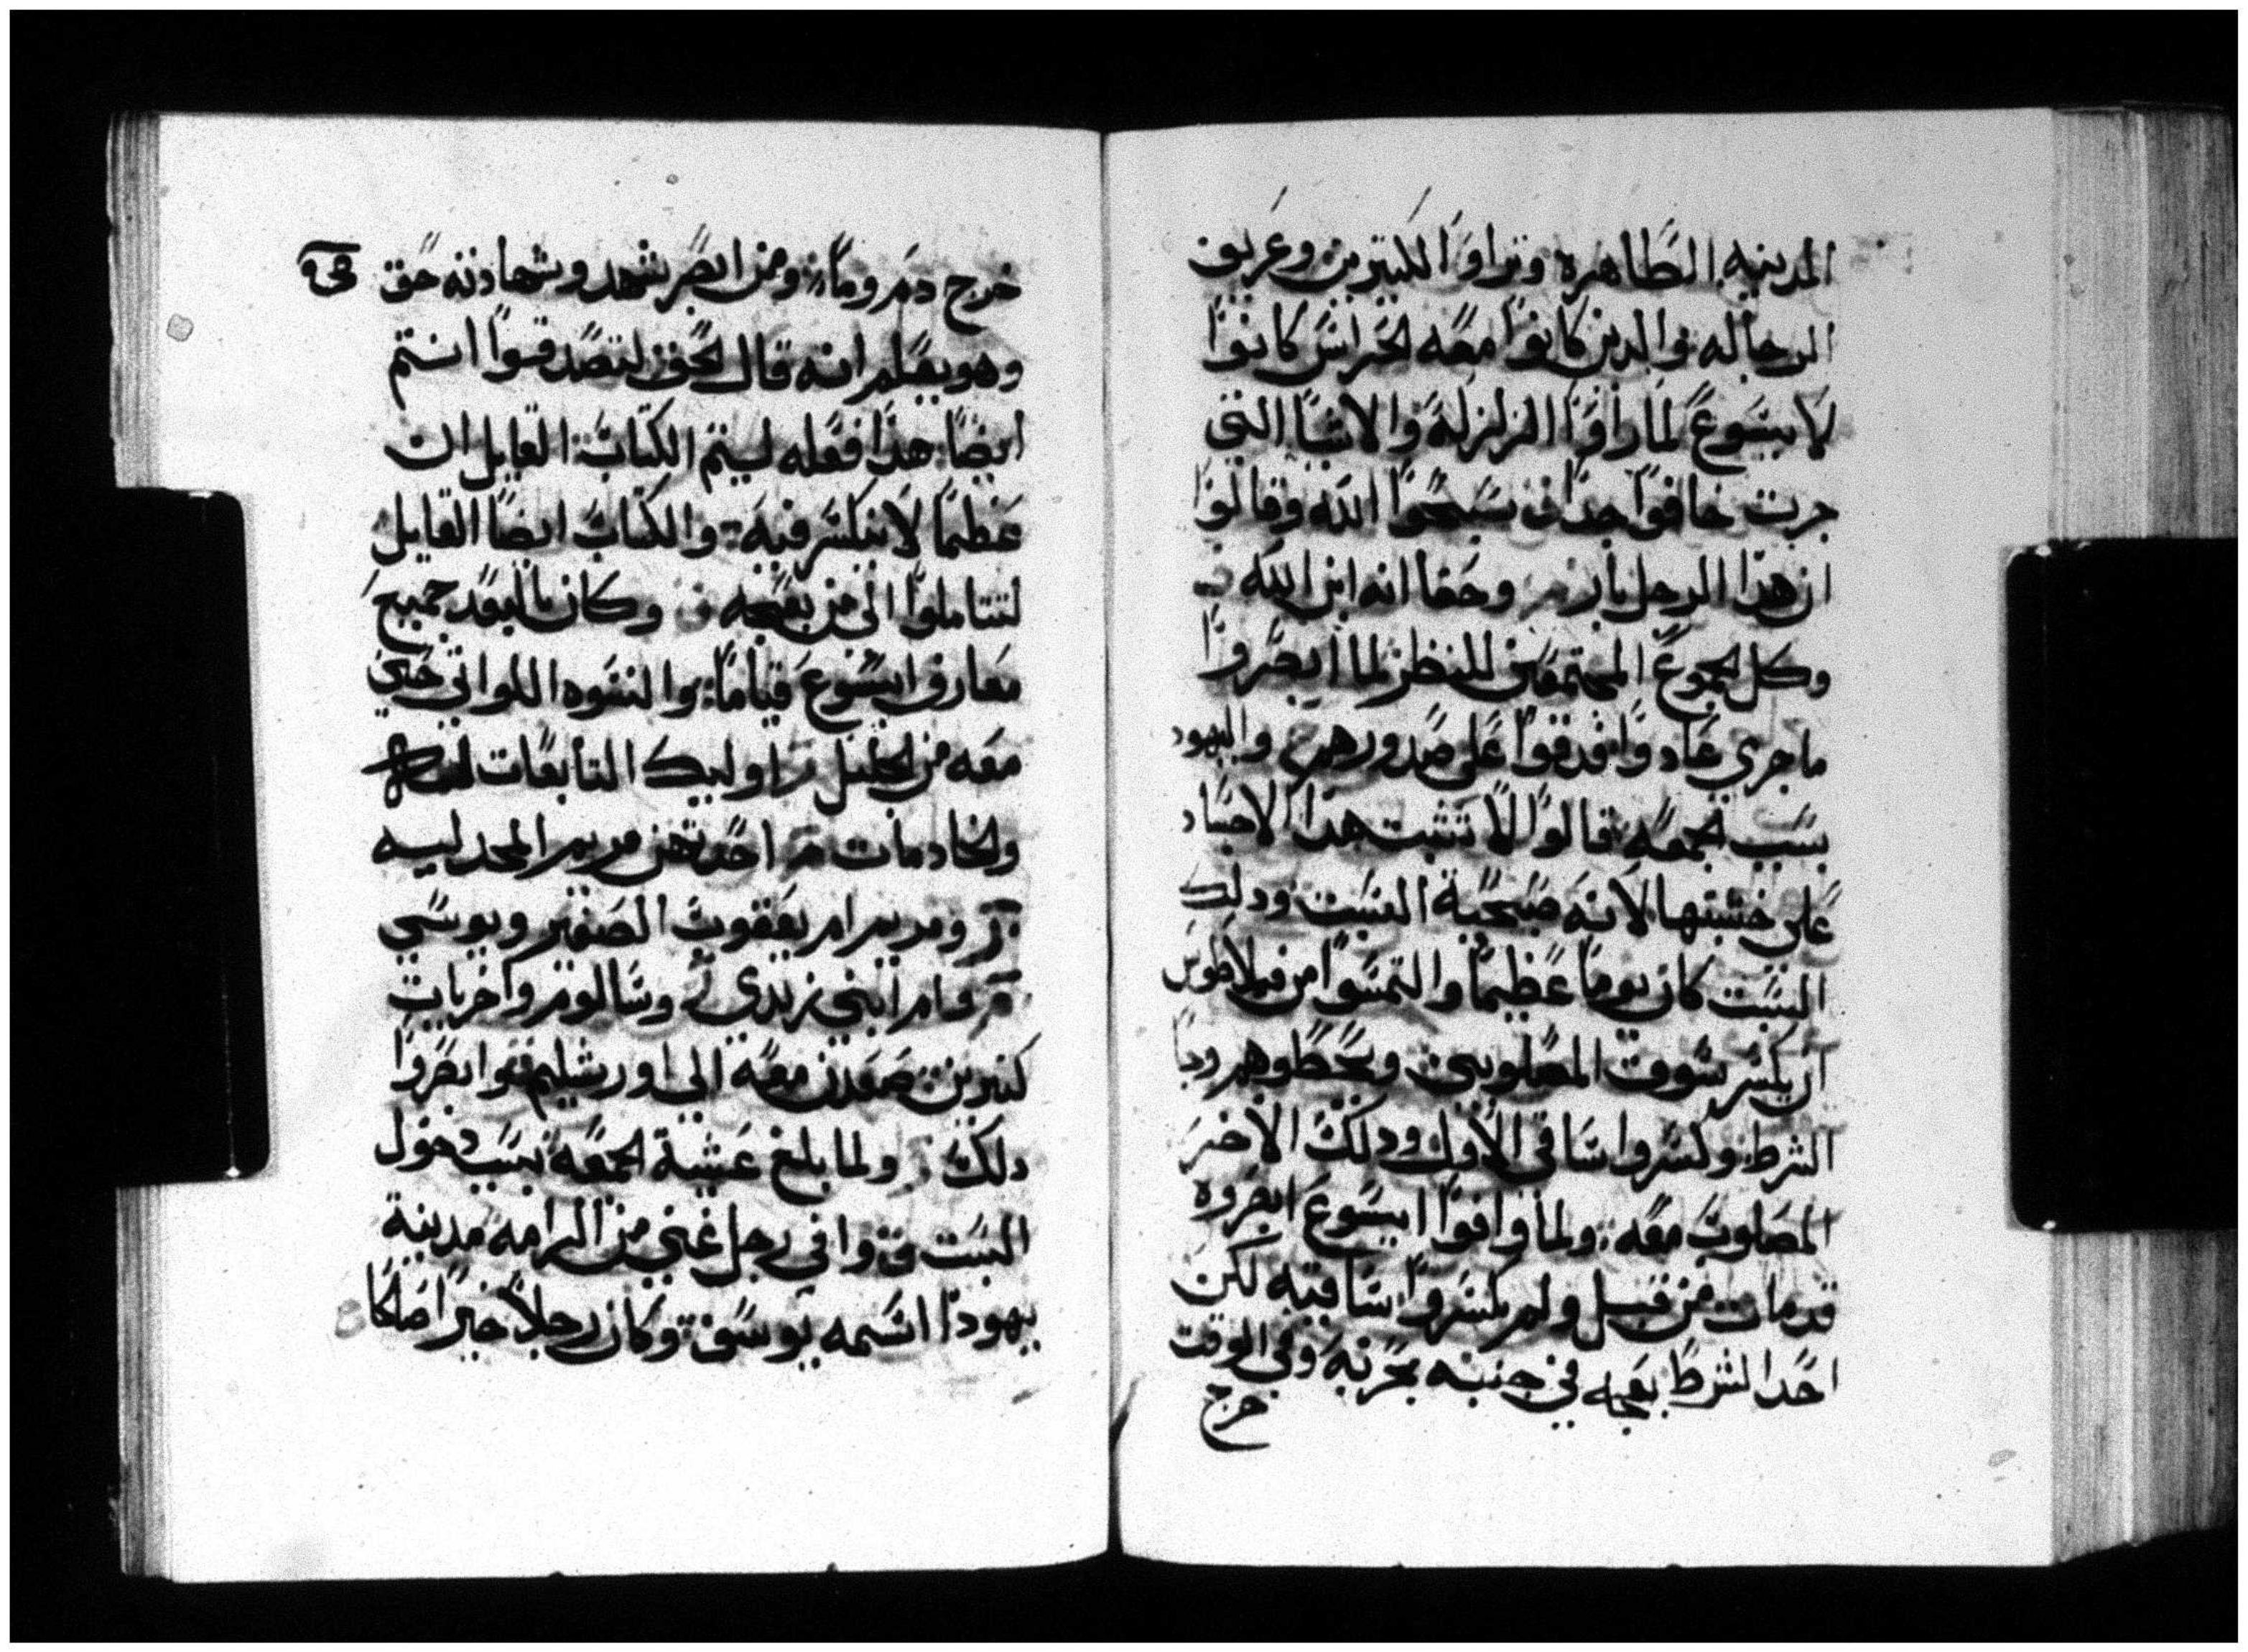 المدينه الطاهره وتراوا لكتيرين وعريف
الرجاله والدين كانوا معه لحراس كانوا
لايسوع لما راوا الزلزله والاشيا التي
جرت خافوا جدا سبحوا الله وقالوا
ان هذا الرجل بار وحقا انه ابن الله
وكل لجموع المجتمعين للنظر لما ابصروا
ما جري عادوا فدقوا على صدورهم واليهود
بسبب لجمعه قالوا لا تثبت هذا الاجساد
على خشبتها لانه صبيحية السبت ودلك
السبت كان يوما عظيما والتمسوا من فيلاطوس
ان يكسر سوق المصلوبين ويحطوهم وجا
الشرط وكسروا ساقي الاول ودلك الاخر
المصلوب معه ولما وافوا ايسوع ابصروه
قد مات من قبل ولم يكسروا ساقيه لكن
احد الشرط بعجه في جنبه بحربه وفي الوقت
خرج
خرج دم وما ومن ابصر شهد وشهادته حق
وهو يعلم انه قال لحق لتصدقوا انتم
ايضا هدا فعله ليتم الكتاب القايل ان
عظما لا ينكسر فيه والكتاب ايضا القايل
لتتاملوا الى من بعجه وكان بالبعد جميع
معارف ايسوع قياما والنسوه اللواتي جين
معه من لجليل اوليك التابعات
ولخادمات احدتهن مريم المجدليه
ومريم ام يعقوب الصغير ويوسي
وام ابني زبدي وسالوم واخريات
كتيرين صعدن معه الى اورشليم ابصروا
دلك ولما بلغ عشية لجمعه بسبب دخول
السبت وافى رجل غني من الرامه مدينة
يهودا اسمه يوسف وكان رجلا خيرا صالحا